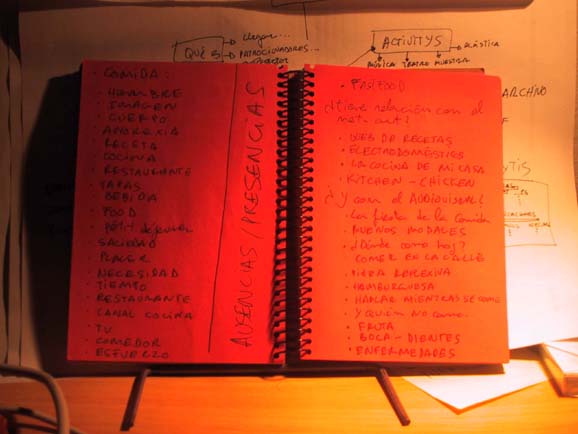 QUÉ ES
llegar...
PATROCINADORES...
ACTIVITYS
PLÁSTICA
MÚSICA TEATRO MUESTRA
ARCHIVO
· COMIDA:
· HOMBRE
· IMAGEN
· CUERPO
· ANOREXIA
· RECETA
· COCINA
· RESTAURANTE
· TAPAS
· BEBIDA
· FOOD
· petit déjeuner
· SACIEDAD
· PLACER
· NECESIDAD
· TIEMPO
· RESTAURANTE
· CANAL COCINA
· TV
· COMEDOR
· ESFUERZO
AUSENCIAS/PRESENCIAS
· FASTFOOD
¿Tiene relación con el
net-art?
· WEB DE RECETAS
· ELECTRODOMÉSTICO
· LA COCINA DE MI CASA
· KITCHEN - CHICKEN
¿Y con el AUDIOVISUAL?
· La fiesta de la comida
· BUENOS MODALES
· ¿Dónde como hoy?
COMER EN LA CALLE
· REFLEXIVA
· HAMBURGUESA
· HABLAR MIENTRAS SE COME
· Y quién no come.
· FRUTA
· BOCA - DIENTES
· ENFERMEDADES